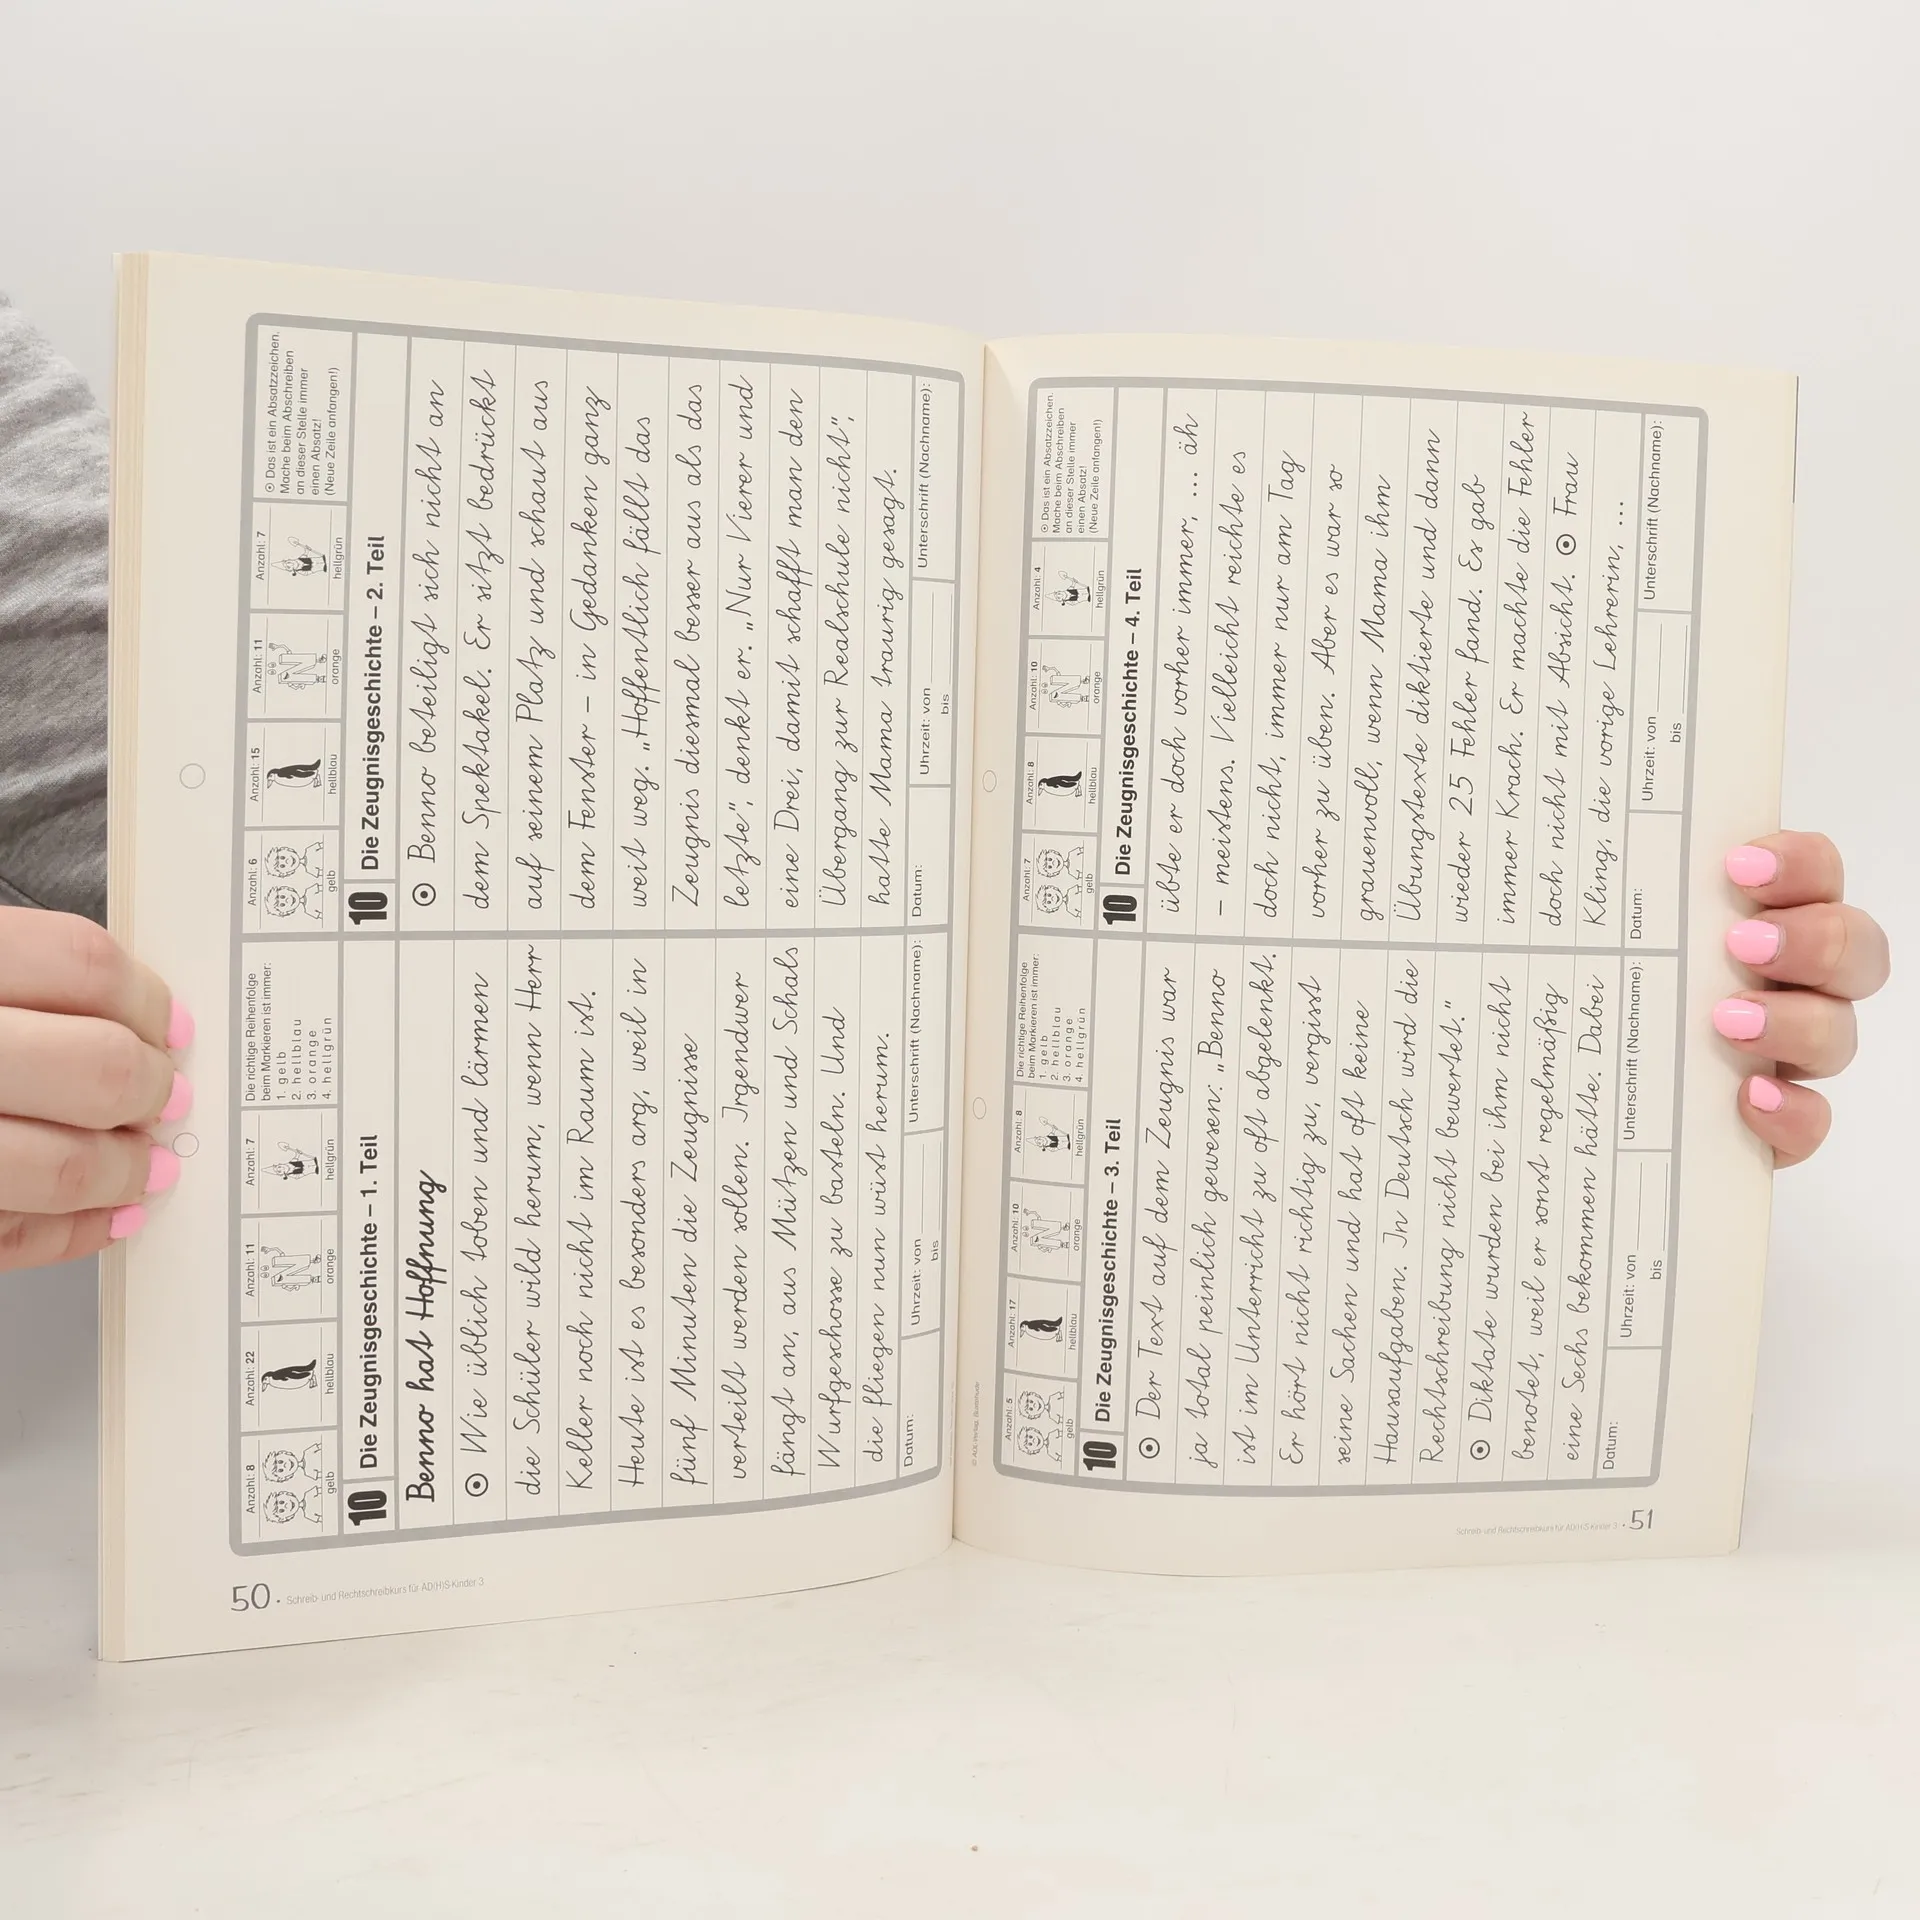 Anzahl: 8
gelb
Anzahl: 22
hellblau
Anzahl: 11
orange
Anzahl: 7
hellgrün
Die richtige Reihenfolge
beim Markieren ist immer:
1. gelb
2. hellblau
3. orange
4. hellgrün
10 Die Zeugnisgeschichte – 1. Teil
Benno hat Hoffnung
⊙ Wie üblich toben und lärmen
die Schüler wild herum, wenn Herr
Keller noch nicht im Raum ist.
Heute ist es besonders arg, weil in
fünf Minuten die Zeugnisse
verteilt werden sollen. Irgendwer
fängt an, aus Mützen und Schals
Wurfgeschosse zu basteln. Und
die fliegen nun wüst herum.
Datum:
Uhrzeit: von
bis
Unterschrift (Nachname):
Anzahl: 6
gelb
Anzahl: 15
hellblau
Anzahl: 11
orange
Anzahl: 7
hellgrün
⊙ Das ist ein Absatzzeichen.
Mache beim Abschreiben
an dieser Stelle immer
einen Absatz!
(Neue Zeile anfangen!)
10 Die Zeugnisgeschichte – 2. Teil
⊙ Benno beteiligt sich nicht an
dem Spektakel. Er sitzt bedrückt
auf seinem Platz und schaut aus
dem Fenster – in Gedanken ganz
weit weg. „Hoffentlich fällt das
Zeugnis diesmal besser aus als das
letzte“, denkt er. „Nur Vierer und
eine Drei, damit schafft man den
Übergang zur Realschule nicht“,
hatte Mama traurig gesagt.
Datum:
Uhrzeit: von
bis
Unterschrift (Nachname):
50 · Schreib- und Rechtschreibkurs für AD(H)S-Kinder 3
Anzahl: 5
gelb
Anzahl: 17
hellblau
Anzahl: 10
orange
Anzahl: 8
hellgrün
Die richtige Reihenfolge
beim Markieren ist immer:
1. gelb
2. hellblau
3. orange
4. hellgrün
10 Die Zeugnisgeschichte – 3. Teil
⊙ Der Text auf dem Zeugnis war
ja total peinlich gewesen: „Benno
ist im Unterricht zu oft abgelenkt.
Er hört nicht richtig zu, vergisst
seine Sachen und hat oft keine
Hausaufgaben. In Deutsch wird die
Rechtschreibung nicht bewertet.“
⊙ Diktate wurden bei ihm nicht
benotet, weil er sonst regelmäßig
eine Sechs bekommen hätte. Dabei
Datum:
Uhrzeit: von
bis
Unterschrift (Nachname):
Anzahl: 7
gelb
Anzahl: 8
hellblau
Anzahl: 10
orange
Anzahl: 4
hellgrün
⊙ Das ist ein Absatzzeichen.
Mache beim Abschreiben
an dieser Stelle immer
einen Absatz!
(Neue Zeile anfangen!)
10 Die Zeugnisgeschichte – 4. Teil
übte er doch vorher immer, ... äh
– meistens. Vielleicht reichte es
doch nicht, immer nur am Tag
vorher zu üben. Aber es war so
grauenvoll, wenn Mama ihm
Übungstexte diktierte und dann
wieder 25 Fehler fand. Es gab
immer Krach. Er machte die Fehler
doch nicht mit Absicht. ⊙ Frau
Kling, die vorige Lehrerin, ...
Datum:
Uhrzeit: von
bis
Unterschrift (Nachname):
Schreib- und Rechtschreibkurs für AD(H)S-Kinder 3 · 51